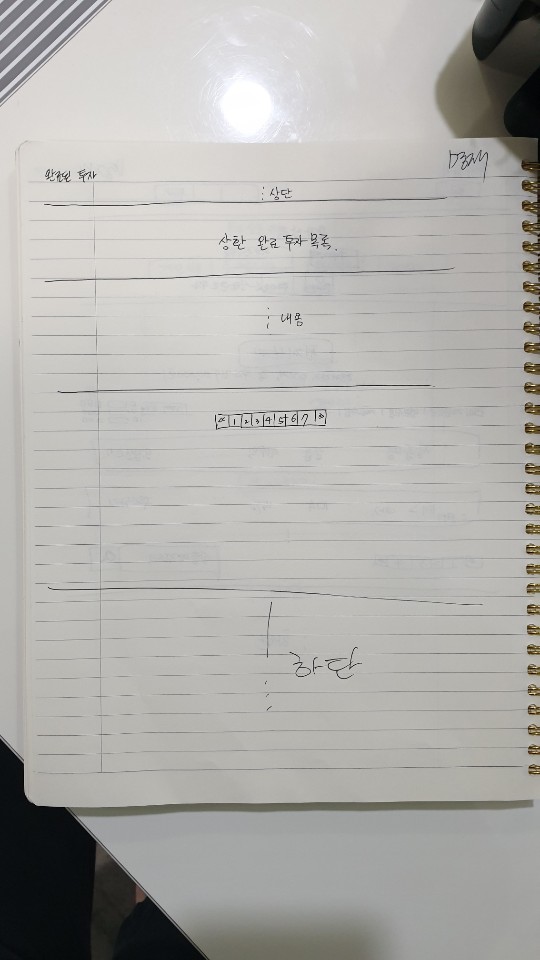 완료된 투자
: 상단
상환 완료 투자 목록.
⋮ 내용
« 1 2 3 4 5 6 7 »
하단